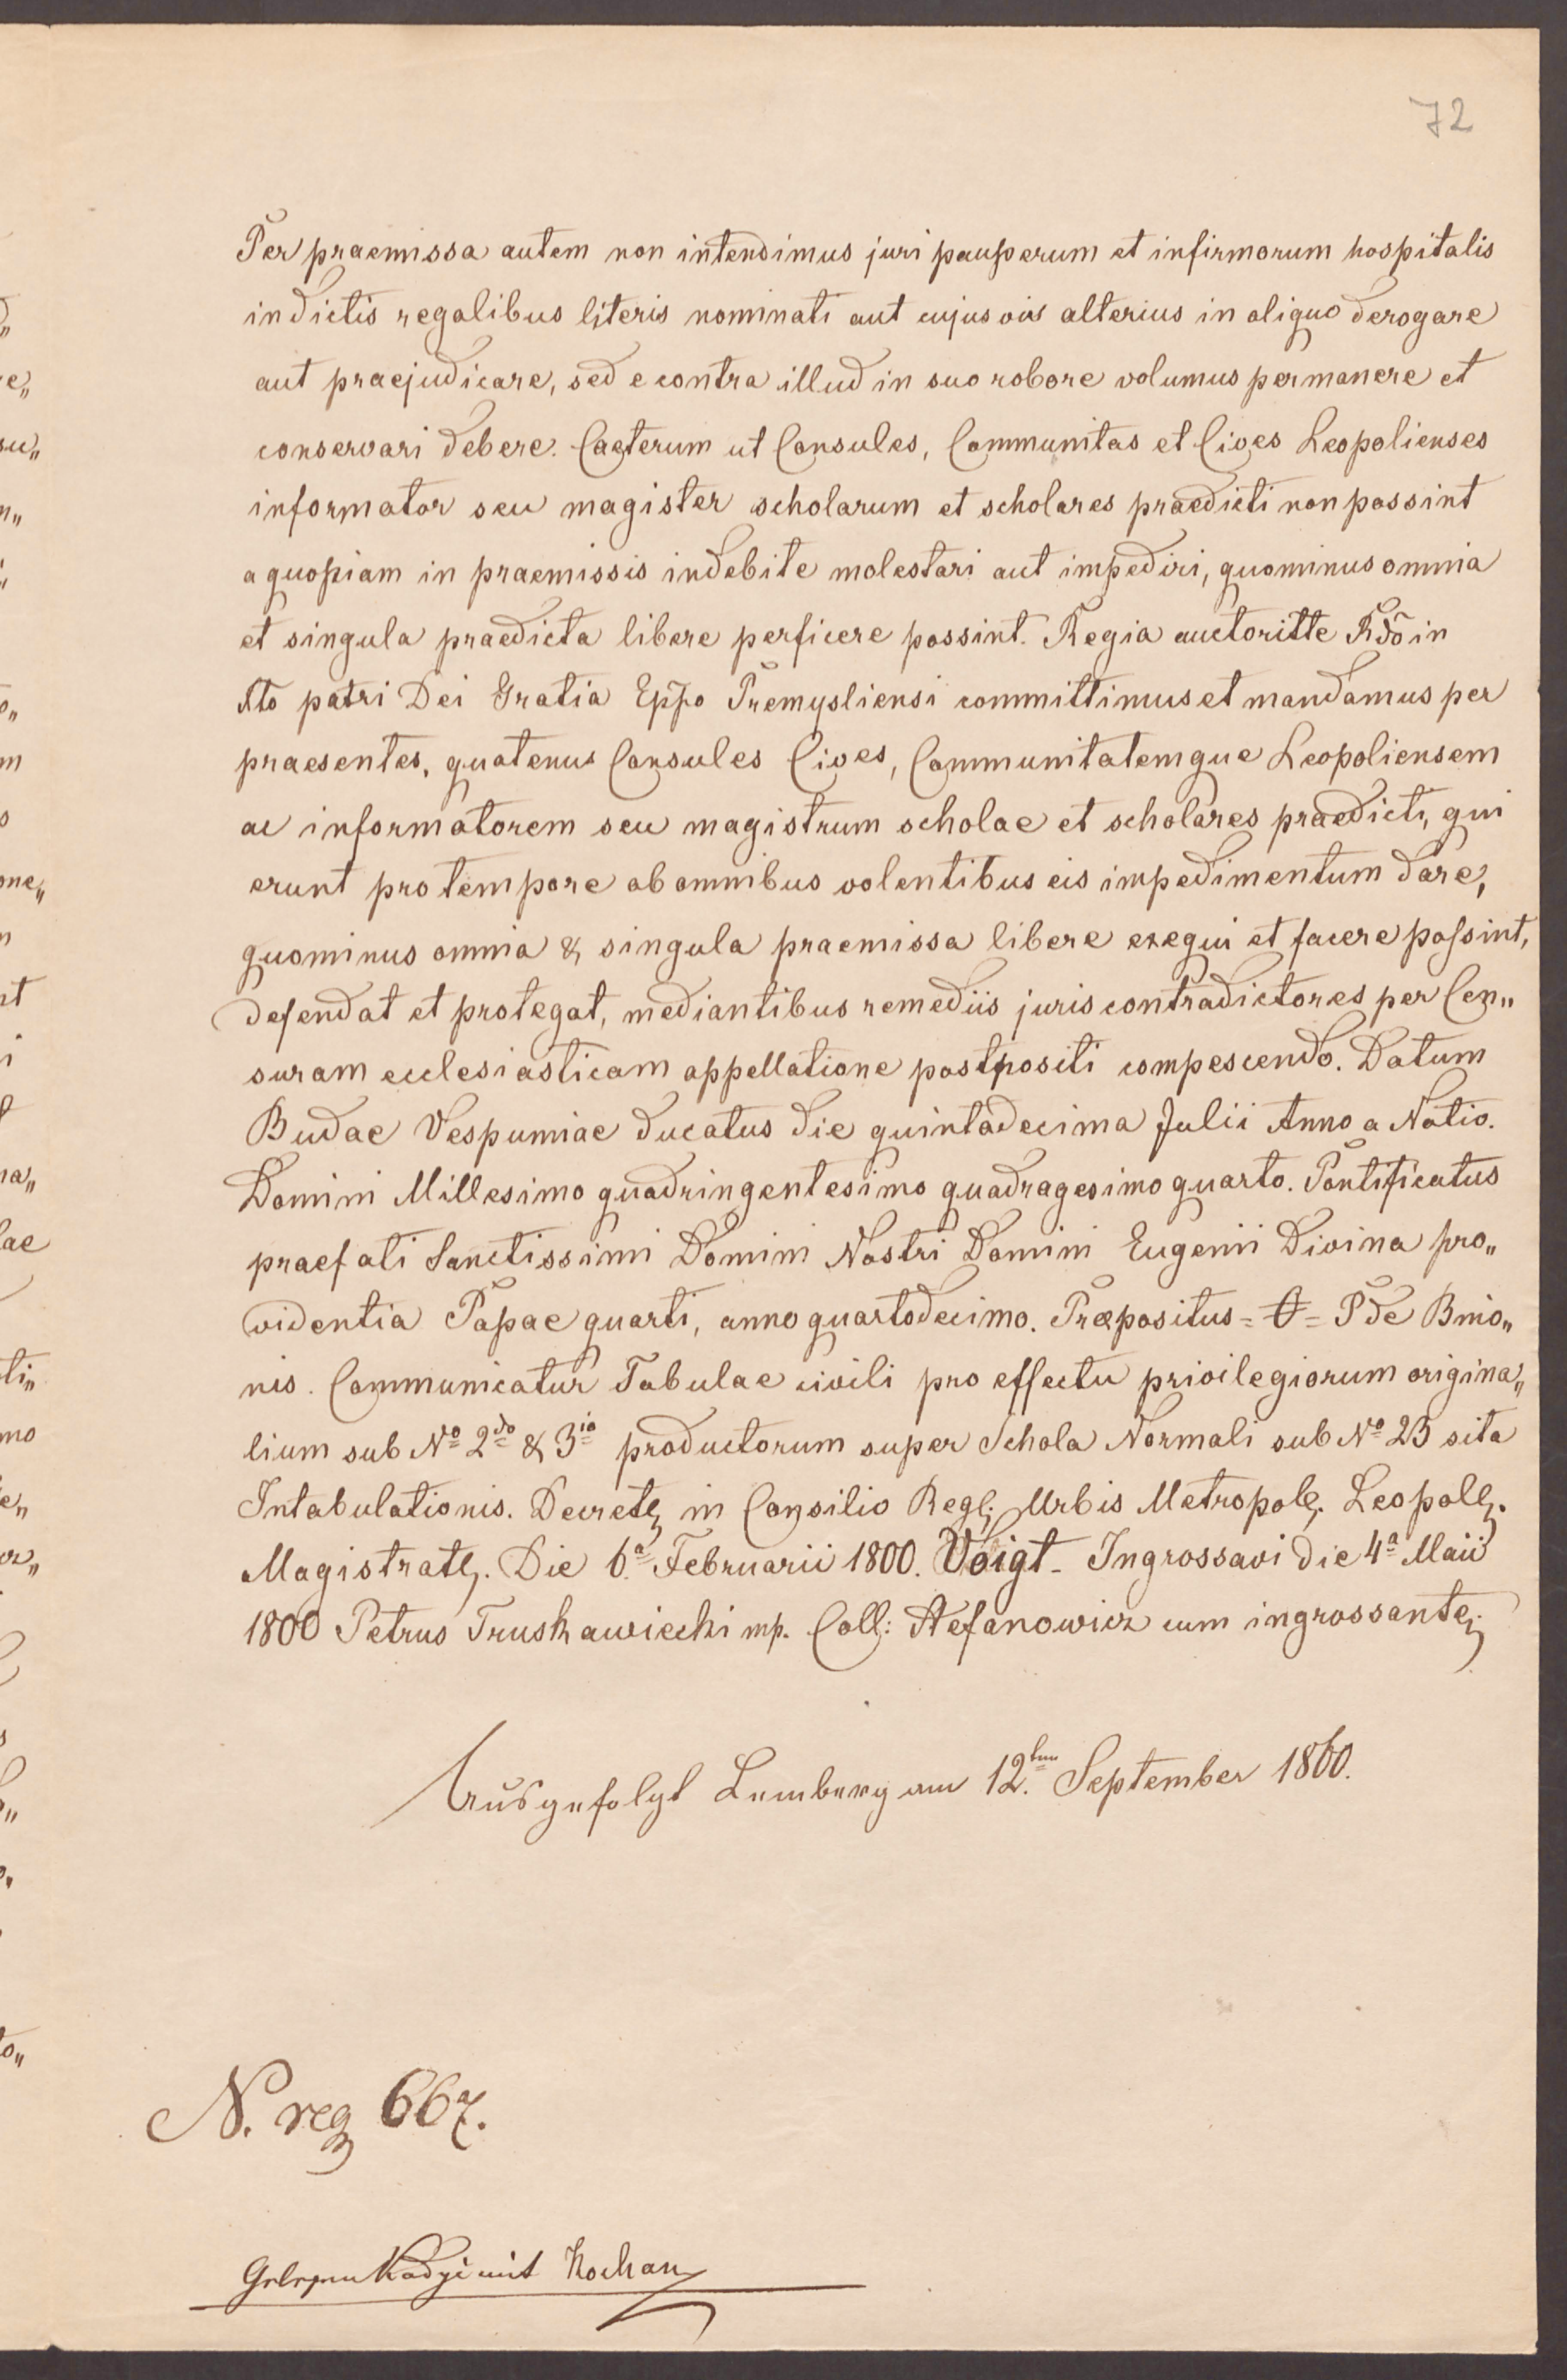 72
Per praemissa autem non intendimus juri pauperum et infirmorum hospitalis
in dictis regalibus literis nominati aut cujusvis alterius in aliquo derogare
aut praejudicare, sed e contra illud in suo robore volumus permanere et
conservari debere. Caeterum ut Consules, Communitas et Cives Leopolienses
informator seu magister scholarum et scholares praedicti non possint
a quopiam in praemissis indebite molestari aut impediri, quominus omnia
et singula praedicta libere perficere possint. Regia auctoritte Rdo in
Xto patri Dei Gratia Eppo Premysliensi committimus et mandamus per
praesentes, quatenus Consules Cives, Communitatemque Leopoliensem
ac informatorem seu magistrum scholae et scholares praedicti, qui
erunt pro tempore ab omnibus volentibus eis impedimentum dare,
quominus omnia & singula praemissa libere exequi et facere possint,
defendat et protegat, mediantibus remediis juris contradictores per Cen„
suram ecclesiasticam appellatione postpositi compescendo. Datum
Budae Vespumiae ducatus die quintadecima Julii Anno a Natio.
Domini Millesimo quadringentesimo quadragesimo quarto. Pontificatus
praefati Sanctissimi Domini Nostri Domini Eugenii Divina pro„
videntia Papae quarti, anno quartodecimo. Præpositus = = P de Bnio„
nis. Communicatur Tabulae civili pro effectu privilegiorum origina„
lium sub No 2do & 3io productorum super Schola Normali sub No 23 sita
Intabulationis. Decret, in Consilio Regl; Urbis Metropol, Leopoll,
Magistratl,. Die 6a Februarii 1800. Voigt - Ingrossavi die 4a Maii
1800 Petrus Truskawiecki mp. Coll: Stefanowicz cum ingrossante,
Ausgefolgt Lemberg am 12ten September 1860.
N. reg 667.
Gelesen Kadyi mit Kochan